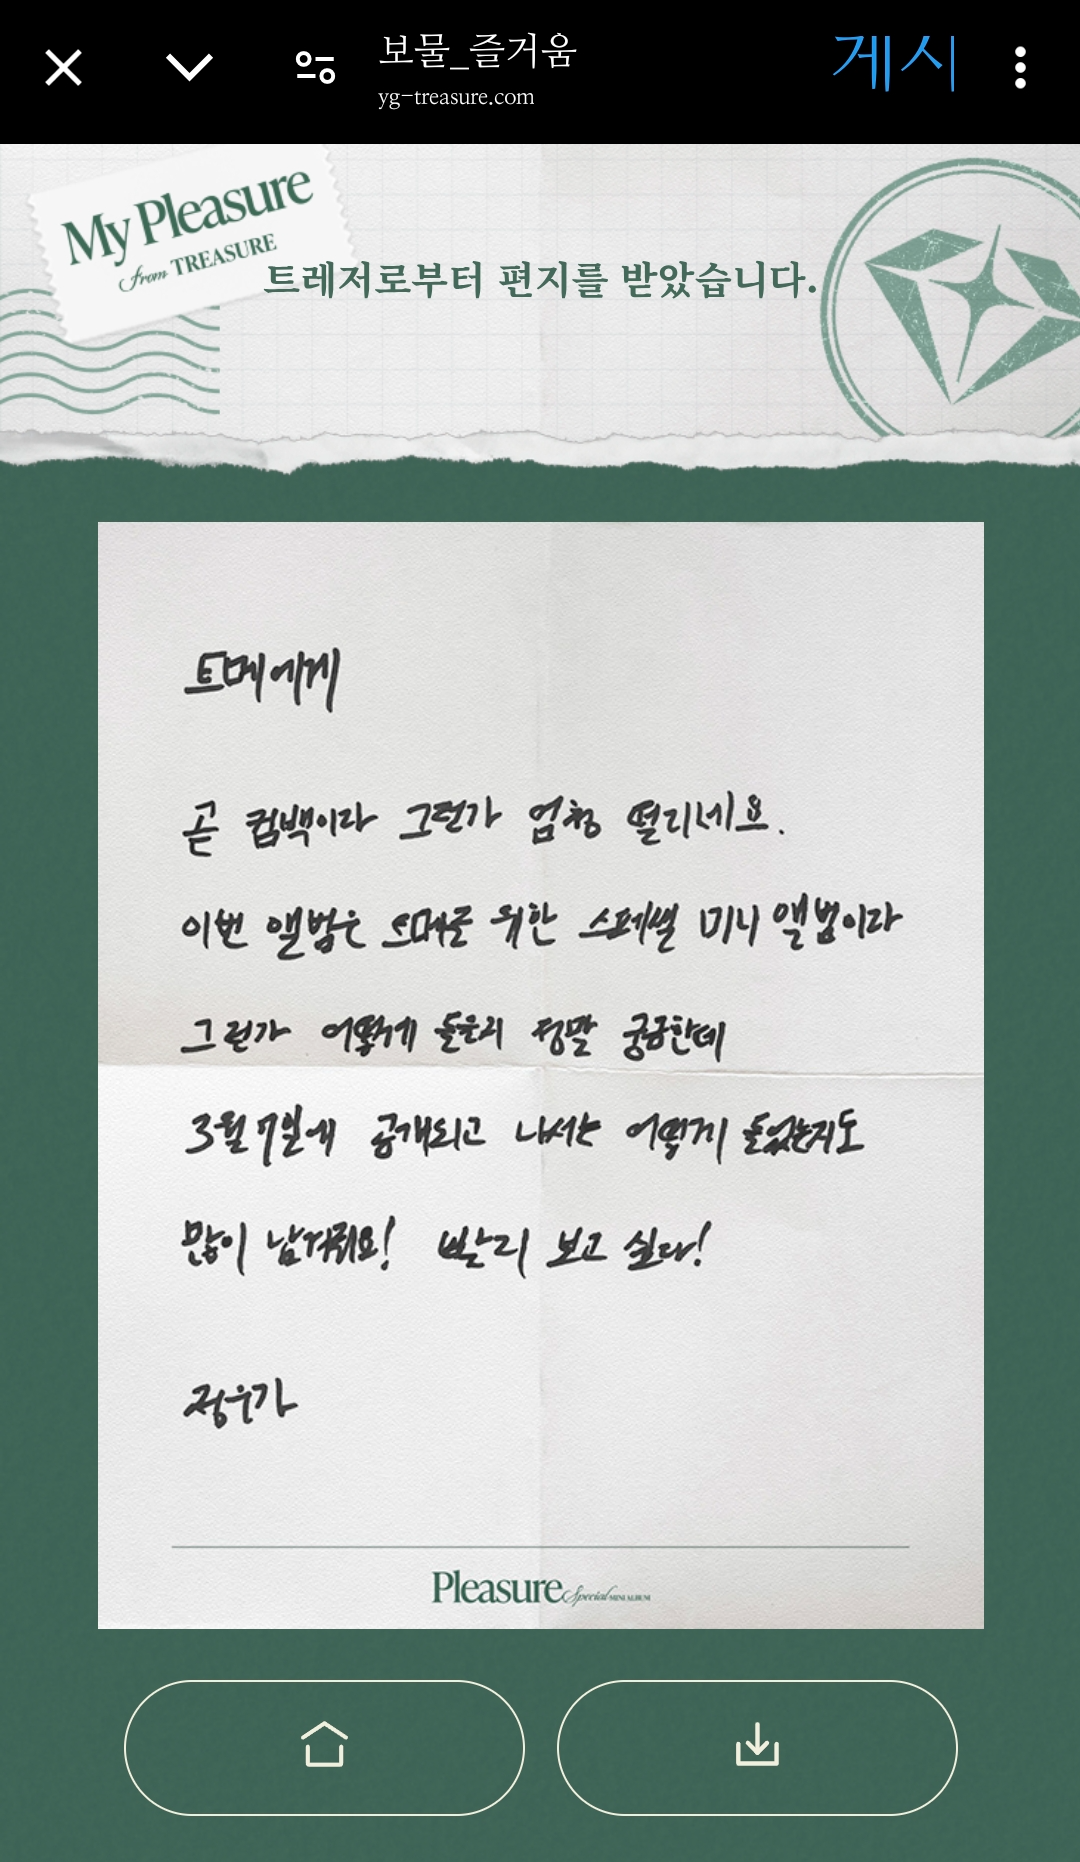 보물_즐거움
게시
yg-treasure.com
My Pleasure
from TREASURE
트레저로부터 편지를 받았습니다.
트메에게
곧 컴백이라 그런가 엄청 떨리네요.
이번 앨범은 트메를 위한 스페셜 미니 앨범이라
그런가 어떻게 들을지 정말 궁금한데
3월 7일에 공개되고 나서는 어떻게 들었는지도
많이 남겨줘요! 빨리 보고 싶다!
정우가
Pleasure Special MINI ALBUM